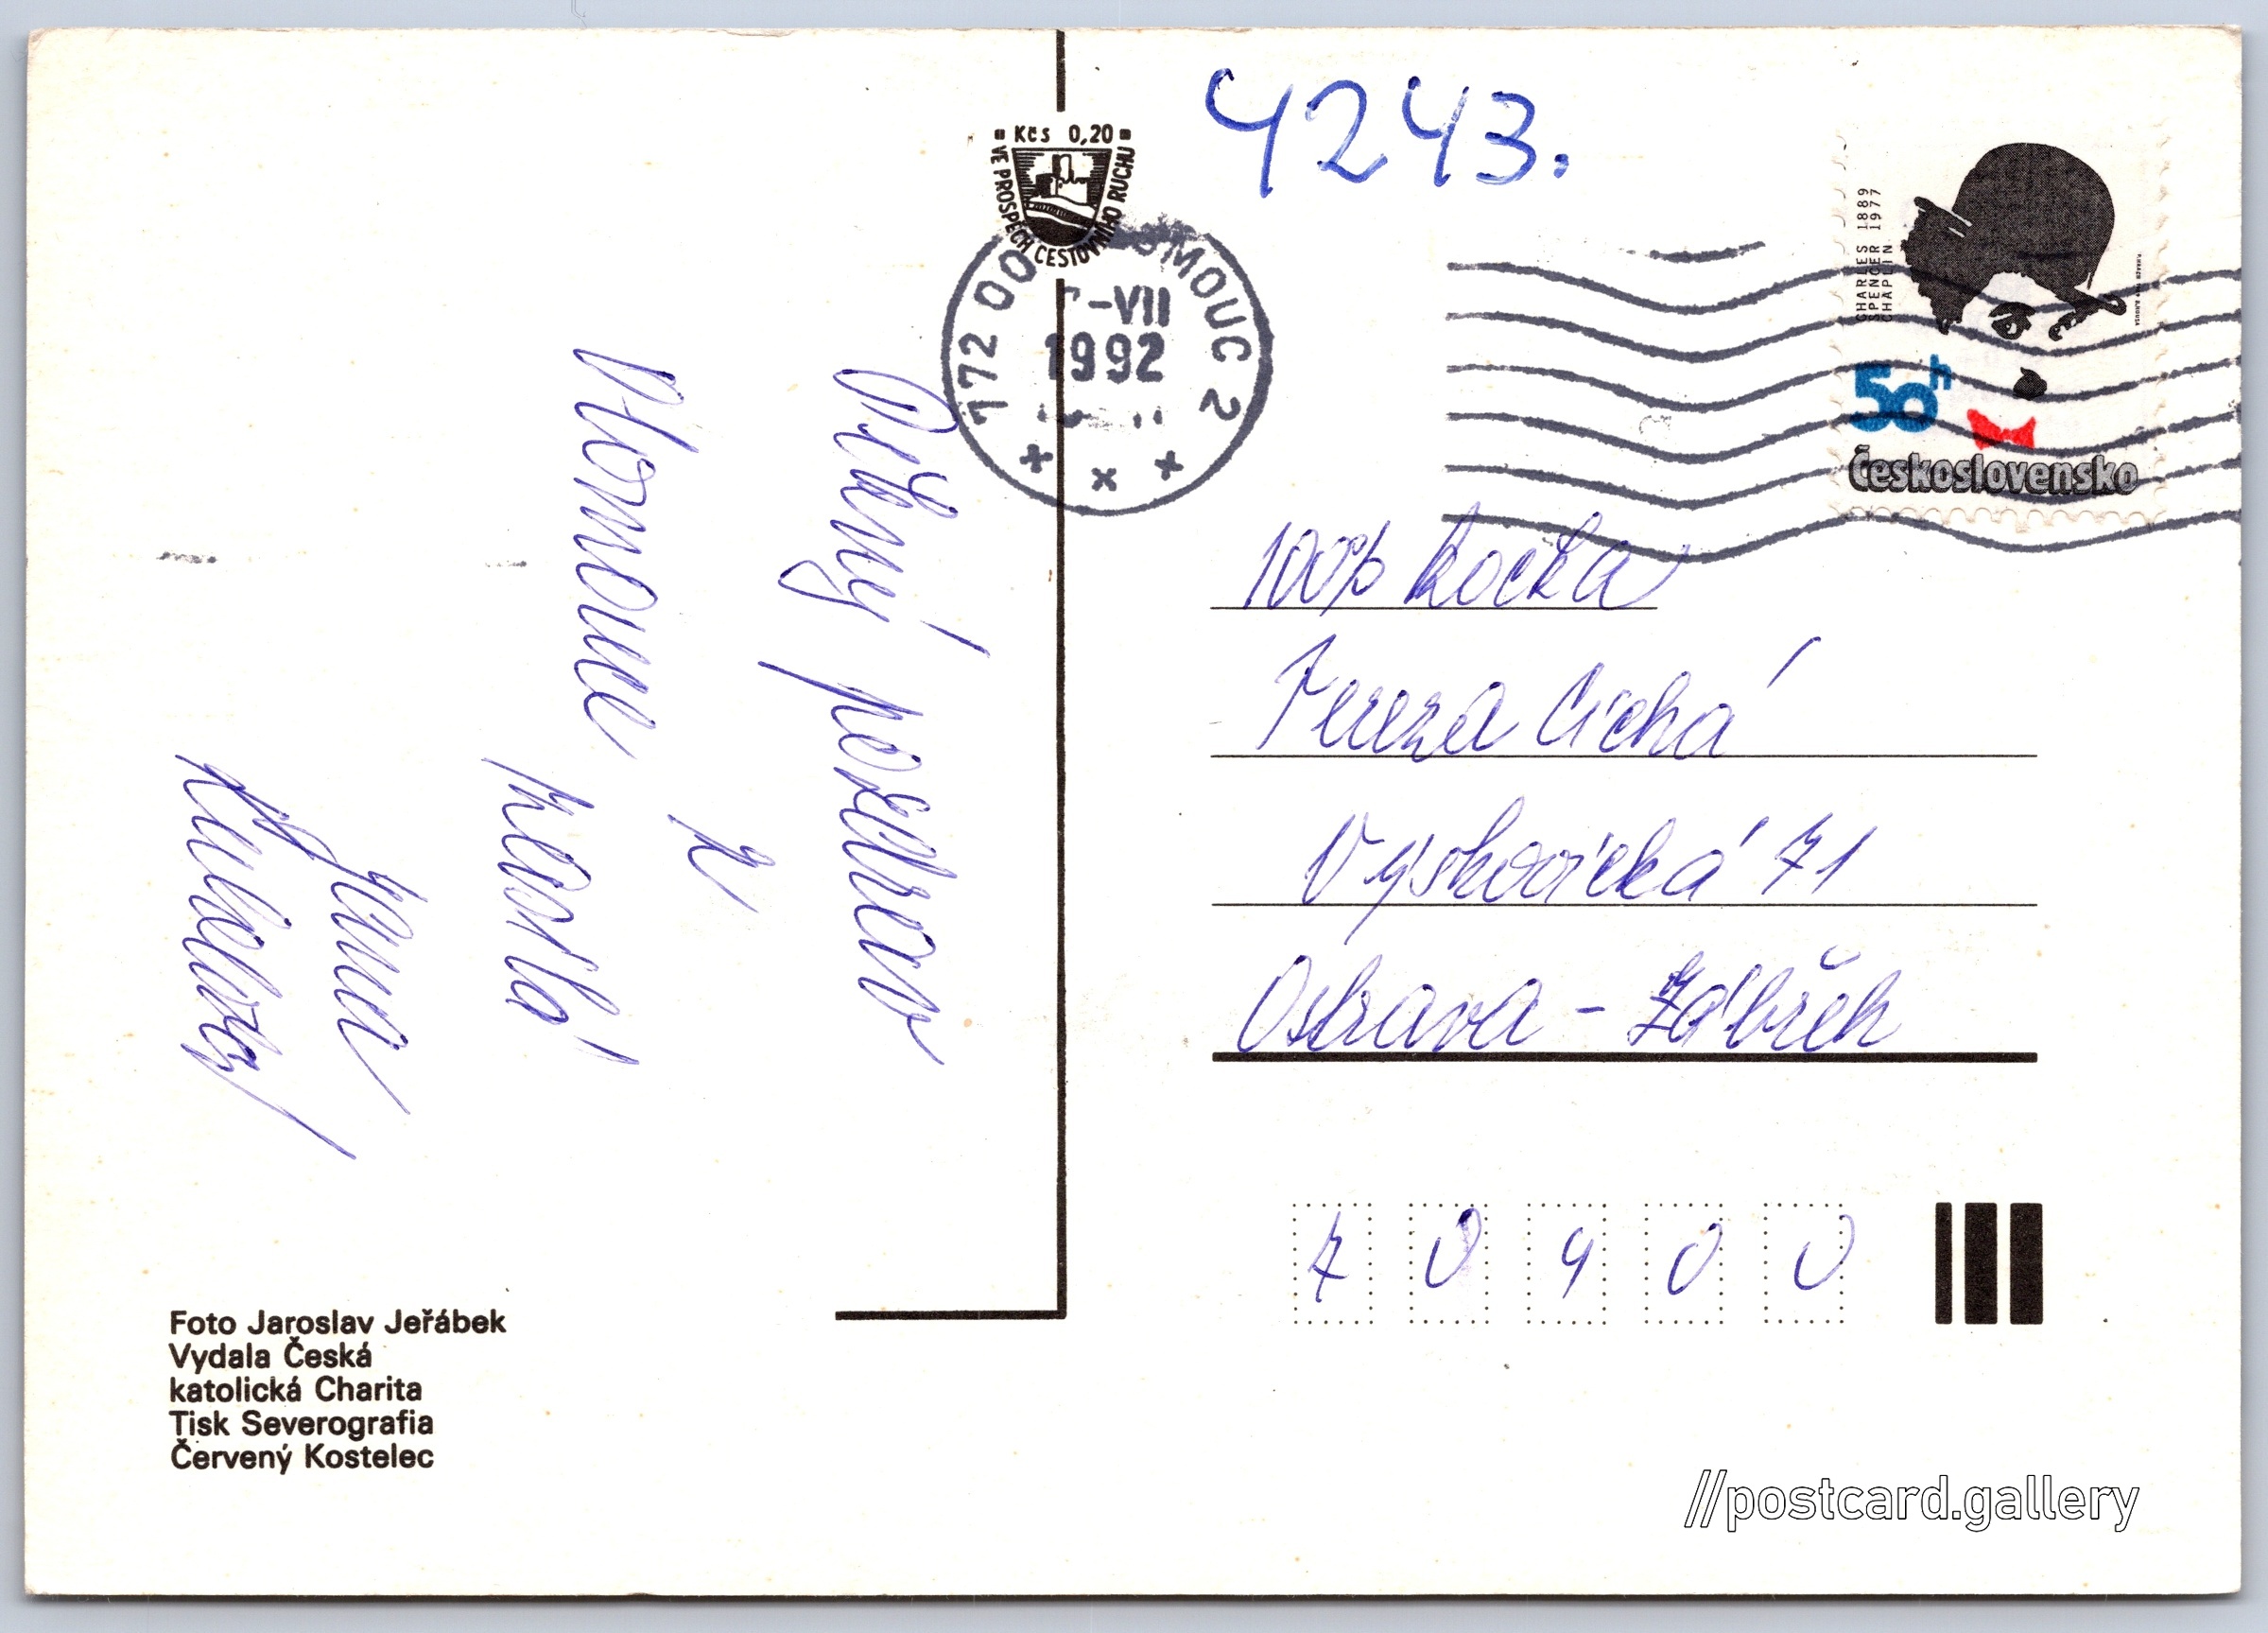 Něžný pozdrav
z
Olomouce
posílá
Kuboušy
4243.
Kčs 0,20
VE PROSPĚCH CESTOVNÍHO RUCHU
772 00 OLOMOUC 2
-VII
1992
CHARLES 1889
SPENCER 1977
CHAPLIN
50h
Československo
100% kočka
Tereza Cichá
Výškovická 71
Ostrava - Zábřeh
70900
Foto Jaroslav Jeřábek
Vydala Česká
katolická Charita
Tisk Severografia
Červený Kostelec
//postcard.gallery